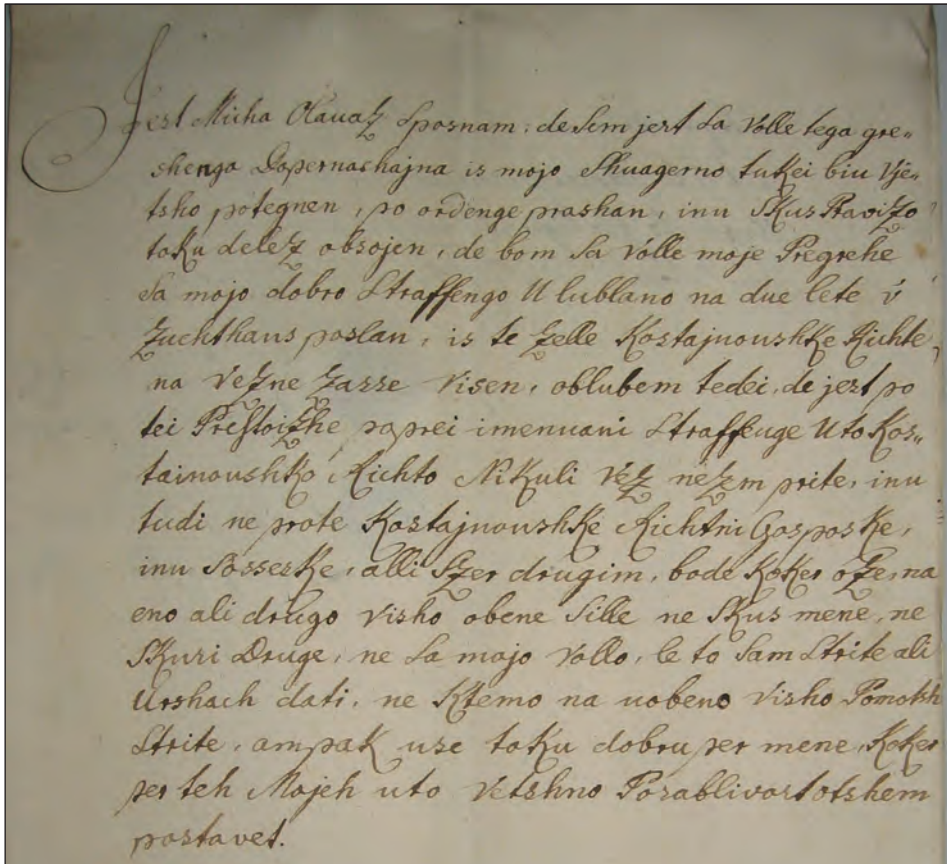 Jest Micha Clavatz Sposnam, de Sem jest Sa Volle tega gre„
shenga Dopernashajna is mojo Shuagerno tukei biu Vje„
tsho potegnen, po ordenge prashan, inu Skus Pravitzo
toku deletz obsojen, de bom Sa Volle moje Pregrehe
Sa mojo dobro Straffengo U lublano na due lete v
Zuchthaus poslan, is te zelle Kostajnoushke Richte
na Vezne zasse Visen, oblubem tedei, de jest po
tei Prestoizhe, poprei imenuani Straffenge Uto Kos„
tainoushko Richto Nikuli Vëz nëzm prite, inu
tudi ne prote Kostajnoushke Richtni Gosposke,
inu Sosseske, alli Szer drugim, bode Koker oze, na
eno ali drugo Visho obene Sille ne Skus mene, ne
Skusi Druge, ne Sa mojo Vollo, le to Sam Strite ali
Urshach dati, ne Ktemo na uobeno Visho Pomotsh
Strite, ampak use toku dobru per mene, Koker
per teh Mojeh uto Vetshno Posablivost otshem
postavet.